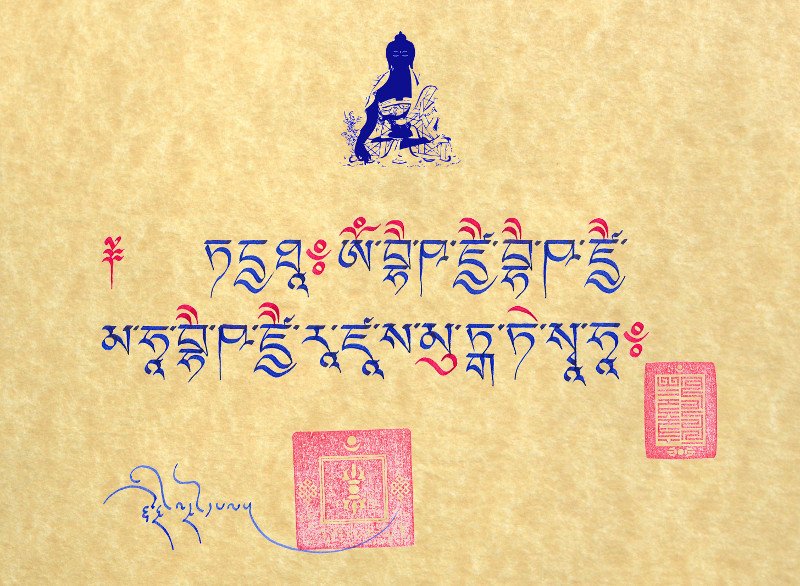 ༈ ཏདྱ་ཐཱ༔ ཨོཾ་བྷཻ་ཥ་ཛྱཻ་བྷཻ་ཥ་ཛྱཻ་
མ་ཧཱ་བྷཻ་ཥ་ཛྱཻ་རཱ་ཛཱ་ས་མུ་དྒ་ཏེ་སྭཱ་ཧཱ༔